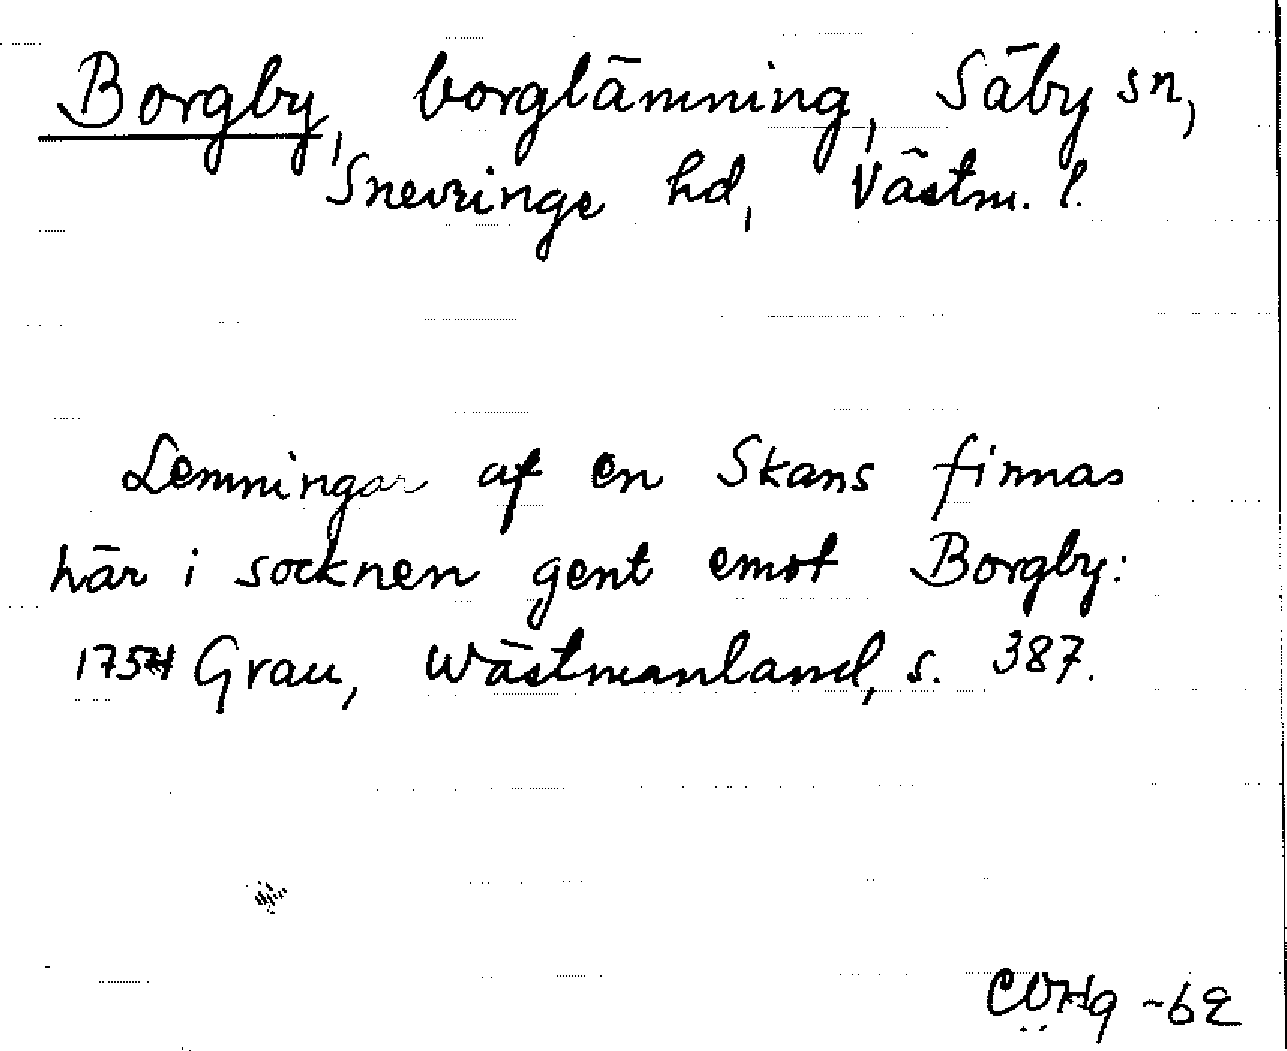 Borgby, borglämning, Säby sn,
Snevringe hd, Västm. l.
Lemningar af en Skans finnas
här i socknen gent emot Borgby:
1754 Grau, Wästmanland, s. 387.
-62